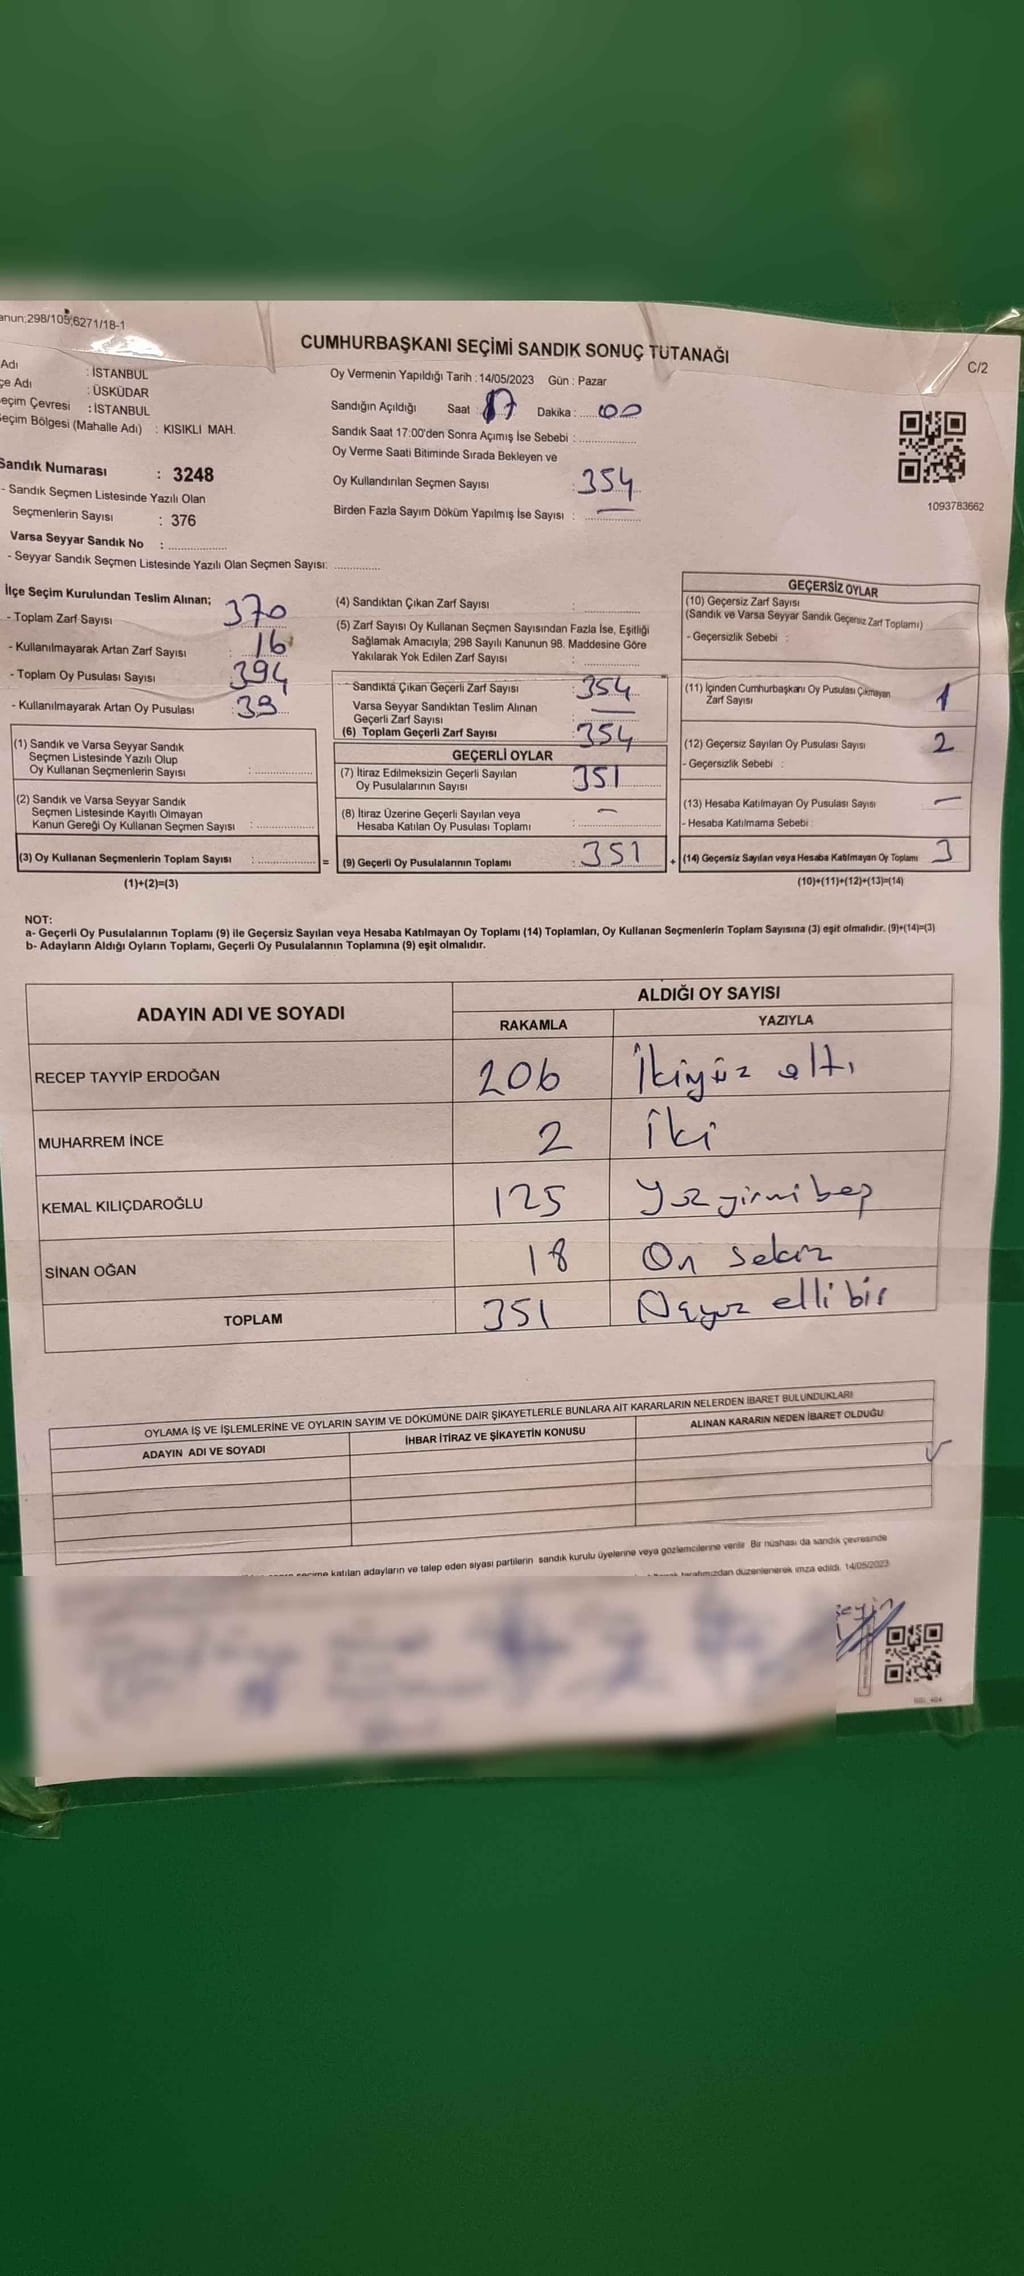 anun;298/105;6271/18-1
C/2
CUMHURBAŞKANI SEÇİMİ SANDIK SONUÇ TUTANAĞI
Adı : İSTANBUL
çe Adı : ÜSKÜDAR
eçim Çevresi : İSTANBUL
Seçim Bölgesi (Mahalle Adı) : KISIKLI MAH.
Sandık Numarası : 3248
- Sandık Seçmen Listesinde Yazılı Olan
Seçmenlerin Sayısı : 376
Varsa Seyyar Sandık No :
- Seyyar Sandık Seçmen Listesinde Yazılı Olan Seçmen Sayısı:
Oy Vermenin Yapıldığı Tarih : 14/05/2023 Gün : Pazar
Sandığın Açıldığı Saat : 17 Dakika : 00
Sandık Saat 17:00'den Sonra Açımış İse Sebebi :
Oy Verme Saati Bitiminde Sırada Bekleyen ve
Oy Kullandırılan Seçmen Sayısı : 354
Birden Fazla Sayım Döküm Yapılmış İse Sayısı : —
1093783662
İlçe Seçim Kurulundan Teslim Alınan;
- Toplam Zarf Sayısı 370
- Kullanılmayarak Artan Zarf Sayısı : 16
- Toplam Oy Pusulası Sayısı 394
- Kullanılmayarak Artan Oy Pusulası : 39
(1) Sandık ve Varsa Seyyar Sandık
Seçmen Listesinde Yazılı Olup
Oy Kullanan Seçmenlerin Sayısı :
(2) Sandık ve Varsa Seyyar Sandık
Seçmen Listesinde Kayıtlı Olmayan
Kanun Gereği Oy Kullanan Seçmen Sayısı :
(3) Oy Kullanan Seçmenlerin Toplam Sayısı : =
(1)+(2)=(3)
(4) Sandıktan Çıkan Zarf Sayısı :
(5) Zarf Sayısı Oy Kullanan Seçmen Sayısından Fazla İse, Eşitliği
Sağlamak Amacıyla; 298 Sayılı Kanunun 98. Maddesine Göre
Yakılarak Yok Edilen Zarf Sayısı :
Sandıkta Çıkan Geçerli Zarf Sayısı : 354
Varsa Seyyar Sandıktan Teslim Alınan
Geçerli Zarf Sayısı : —
(6) Toplam Geçerli Zarf Sayısı : 354
GEÇERLİ OYLAR
(7) İtiraz Edilmeksizin Geçerli Sayılan
Oy Pusulalarının Sayısı 351
(8) İtiraz Üzerine Geçerli Sayılan veya
Hesaba Katılan Oy Pusulası Toplamı : —
(9) Geçerli Oy Pusulalarının Toplamı : 351 +
GEÇERSİZ OYLAR
(10) Geçersiz Zarf Sayısı
(Sandık ve Varsa Seyyar Sandık Geçersiz Zarf Toplamı)
- Geçersizlik Sebebi :
(11) İçinden Cumhurbaşkanı Oy Pusulası Çıkmayan
Zarf Sayısı 1
(12) Geçersiz Sayılan Oy Pusulası Sayısı 2
- Geçersizlik Sebebi :
(13) Hesaba Katılmayan Oy Pusulası Sayısı —
- Hesaba Katılmama Sebebi :
(14) Geçersiz Sayılan veya Hesaba Katılmayan Oy Toplamı 3
(10)+(11)+(12)+(13)=(14)
NOT:
a- Geçerli Oy Pusulalarının Toplamı (9) ile Geçersiz Sayılan veya Hesaba Katılmayan Oy Toplamı (14) Toplamları, Oy Kullanan Seçmenlerin Toplam Sayısına (3) eşit olmalıdır. (9)+(14)=(3)
b- Adayların Aldığı Oyların Toplamı, Geçerli Oy Pusulalarının Toplamına (9) eşit olmalıdır.
ADAYIN ADI VE SOYADI
ALDIĞI OY SAYISI
RAKAMLA YAZIYLA
RECEP TAYYİP ERDOĞAN 206 İkiyüz altı
MUHARREM İNCE 2 İki
KEMAL KILIÇDAROĞLU 125 Yüzyirmibeş
SİNAN OĞAN 18 On sekiz
TOPLAM 351 elli bir
OYLAMA İŞ VE İŞLEMLERİNE VE OYLARIN SAYIM VE DÖKÜMÜNE DAİR ŞİKAYETLERLE BUNLARA AİT KARARLARIN NELERDEN İBARET BULUNDUKLARI
ADAYIN ADI VE SOYADI İHBAR İTİRAZ VE ŞİKAYETİN KONUSU ALINAN KARARIN NEDEN İBARET OLDUĞU
seçime katılan adayların ve talep eden siyasi partilerin sandık kurulu üyelerine veya gözlemcilerine verilir. Bir nüshası da sandık çevresinde
tarafımızdan düzenlenerek imza edildi. 14/05/2023